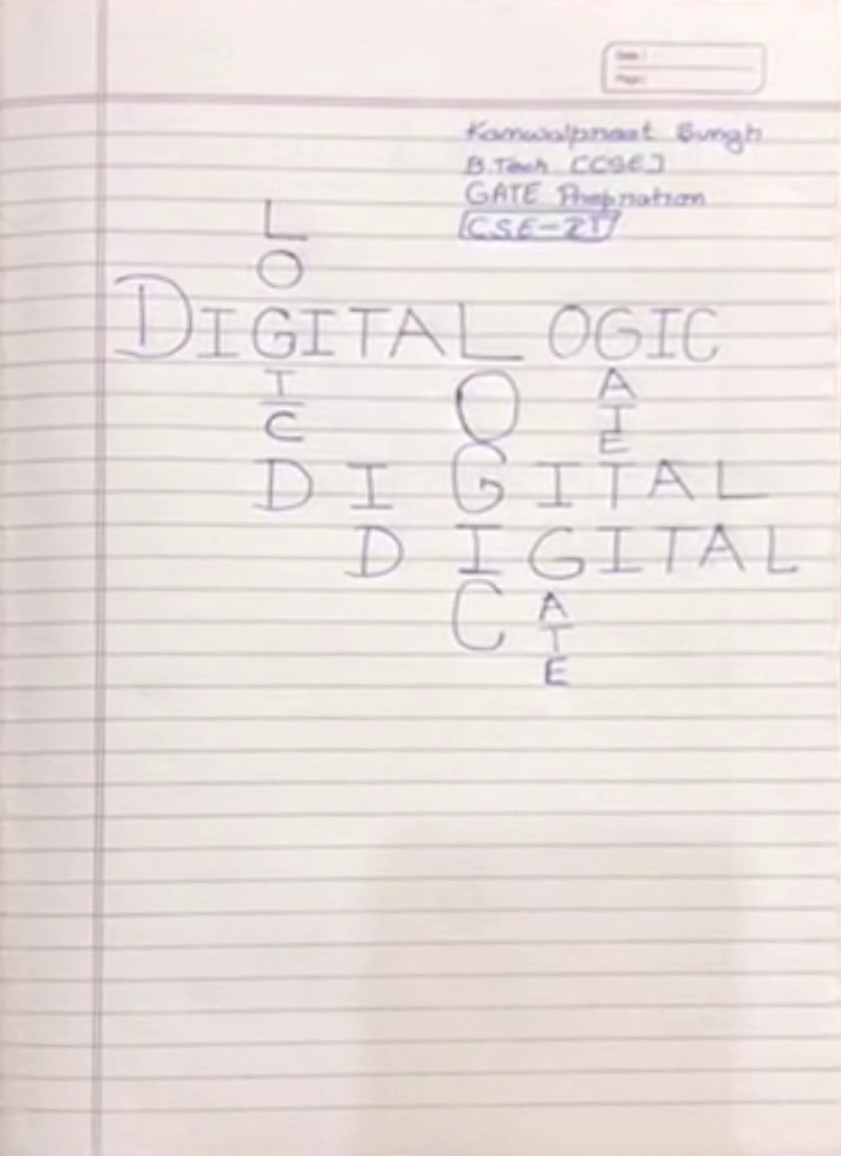 Date :
Page :
Kanwalpreet Singh
B.Tech [CSE]
GATE Prepration
CSE-IT
L
O
DIGITAL OGIC
I A
C O T
E
D I G I T A L
D I G I T A L
C A
T
E